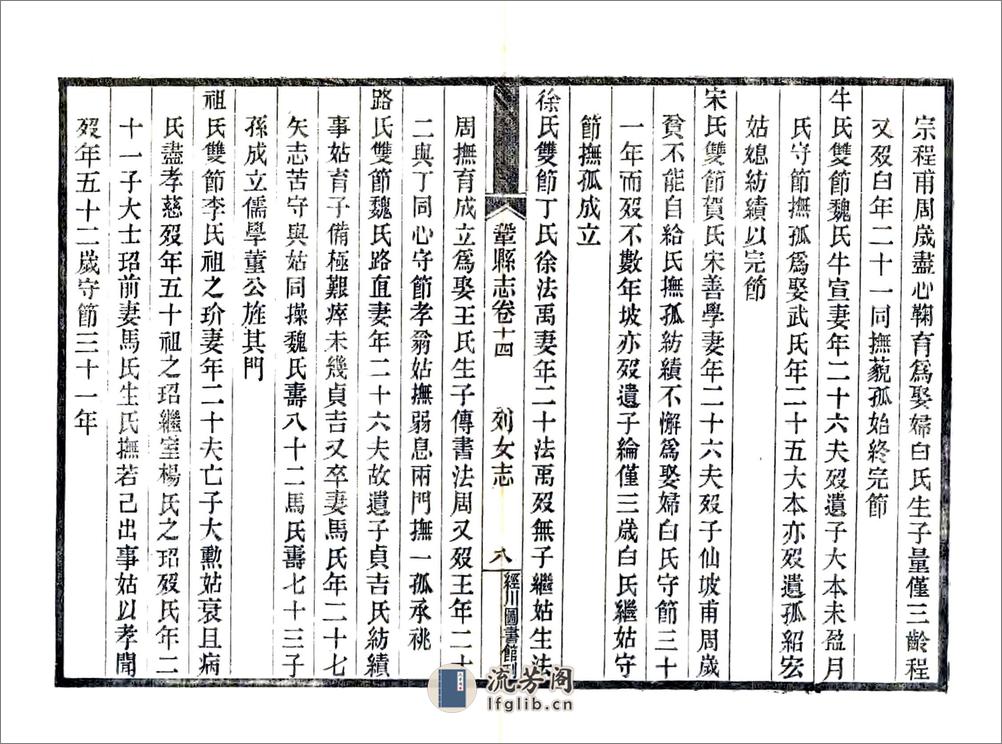 宗程甫周歲盡心鞠育爲娶婦白氏生子量僅三齡程
又歿白年二十一同撫藐孤始終完節
牛氏雙節魏氏牛宣妻年二十六夫歿遺子大本未盈月
氏守節撫孤爲娶武氏年二十五大本亦歿遺孤紹宏
姑媳紡績以完節
宋氏雙節賀氏宋善學妻年二十六夫歿子仙坡甫周歲
貧不能自給氏撫孤紡績不懈爲娶婦白氏守節三十
一年而歿不數年坡亦歿遺子綸僅三歲白氏繼姑守
節撫孤成立
徐氏雙節丁氏徐法禹妻年二十法禹歿無子繼姑生法
周撫育成立爲娶王氏生子傳書法周又歿王年二十
二與丁同心守節孝翁姑撫弱息兩門撫一孤承祧
路氏雙節魏氏路直妻年二十六夫故遺子貞吉氏紡績
事姑育子備極艱瘁未幾貞吉又卒妻馬氏年二十七
矢志苦守與姑同操魏氏壽八十二馬氏壽七十三子
孫成立儒學董公旌其門
祖氏雙節李氏祖之玠妻年二十夫亡子大勲姑衰且病
氏盡孝慈歿年五十祖之玿繼室楊氏之玿歿氏年二
十一子大士玿前妻馬氏生氏撫若己出事姑以孝聞
歿年五十二歲守節三十一年
鞏縣志卷十四 列女志 八
經川圖書館刊
流芳阁
lfglib.cn